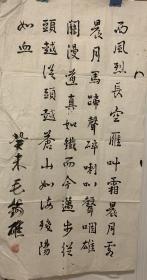 西風烈長空雁叫霜晨月霜
晨月馬蹄聲碎喇叭聲咽雄
關漫道真如鐵而今邁步從
頭越從頭越蒼山如海殘陽
如血
癸未毛